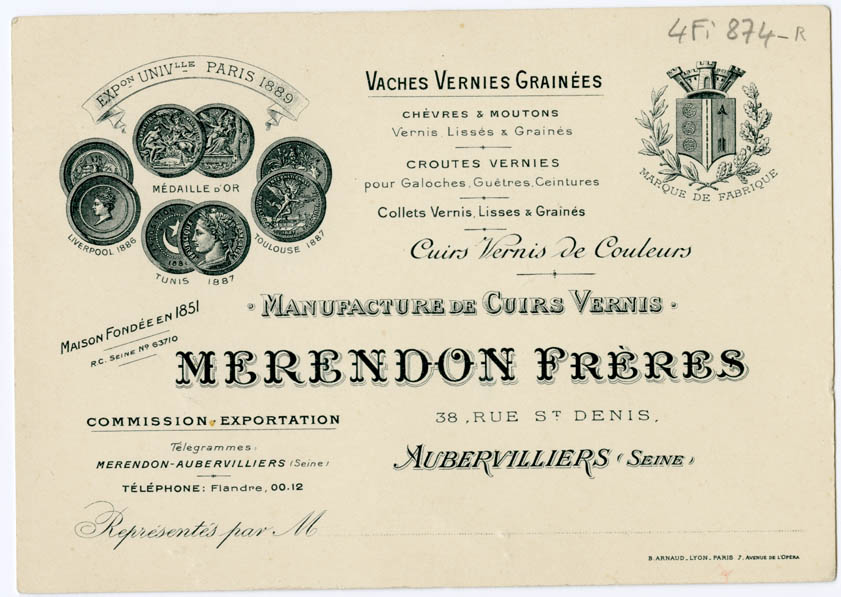 4Fi 874-R
EXPon UNIVlle PARIS 1889
MÉDAILLE D'OR
LIVERPOOL 1886
TUNIS 1887
TOULOUSE 1887
VACHES VERNIES GRAINÉES
CHÈVRES & MOUTONS
Vernis, Lissés & Grainés
CROUTES VERNIES
pour Galoches, Guêtres, Ceintures
Collets Vernis, Lisses & Grainés
Cuirs Vernis de Couleurs
MARQUE DE FABRIQUE
MANUFACTURE DE CUIRS VERNIS
MAISON FONDÉE EN 1851
R.C. SEINE No 63710
MERENDON FRÈRES
COMMISSION, EXPORTATION
38, RUE ST DENIS,
Télegrammes:
MERENDON-AUBERVILLIERS (Seine)
AUBERVILLIERS (SEINE)
TÉLÉPHONE: Flandre, 00.12
Représentés par M
B. ARNAUD_LYON_PARIS 7, AVENUE DE L'OPÉRA